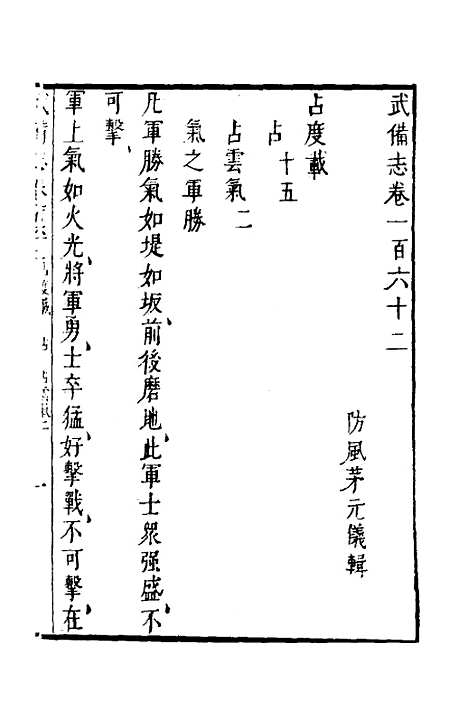 武備志卷一百六十二
防風茅元儀輯
占度載
占十五
占雲氣二
氣之軍勝
凡軍勝氣如堤如坂前後磨地此軍士眾强盛不
可擊
軍上氣如火光將軍勇士卒猛好擊戰不可擊在